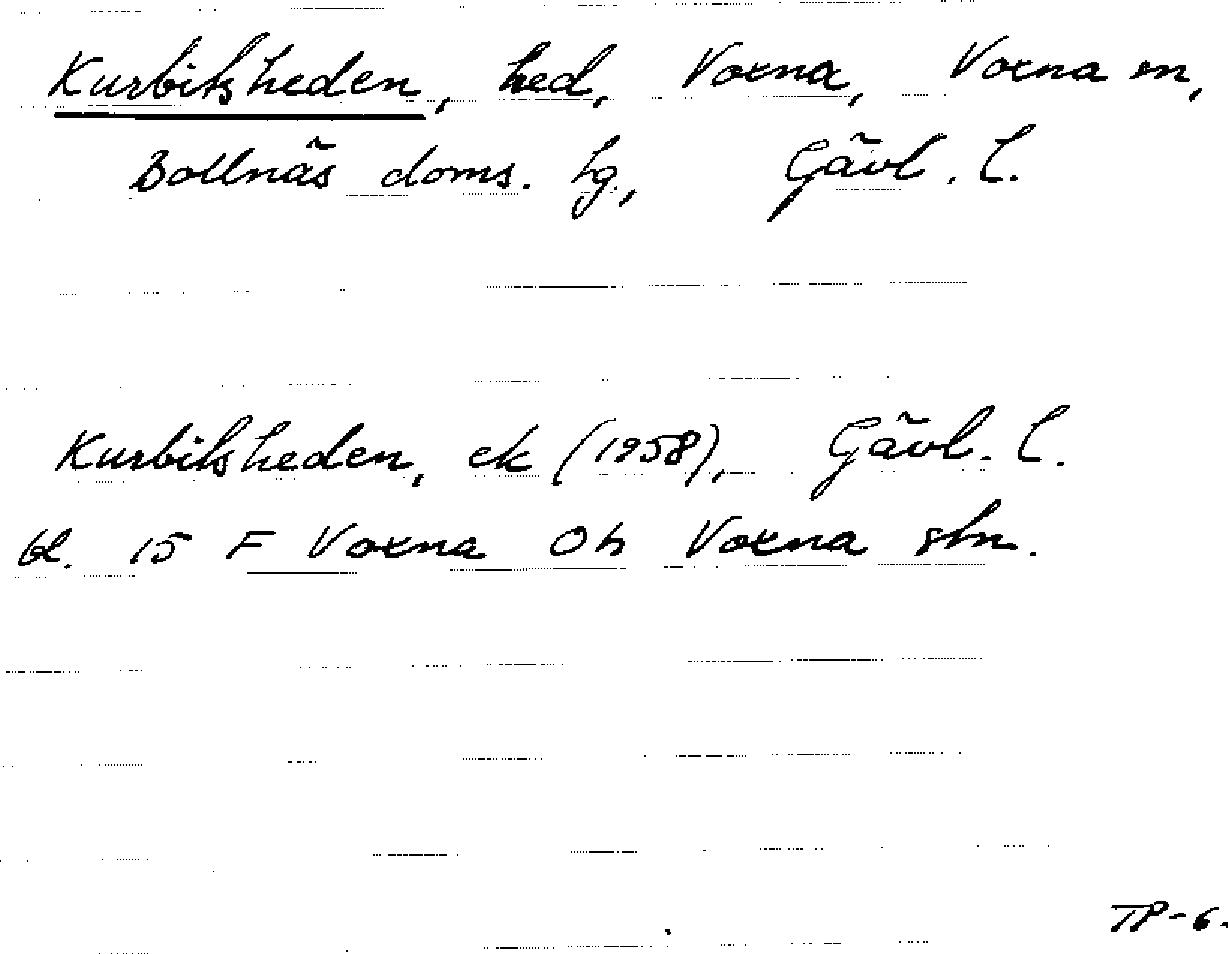 Kurbitsheden, hed, Voxna, Voxna sn,
Bollnäs doms. hg, Gävl. l.
Kurbitsheden, ek (1958), Gävl. l.
bl. 15 F Voxna Oh Voxna stn.
TP-6.